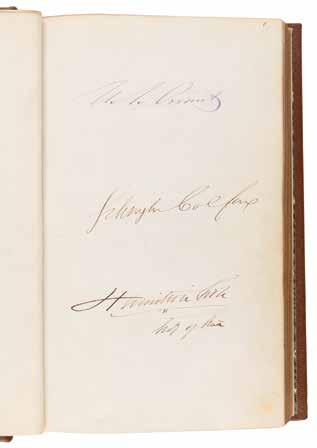 U. S. Grant
Schuyler Colfax
Hamilton Fish
Sec. of State